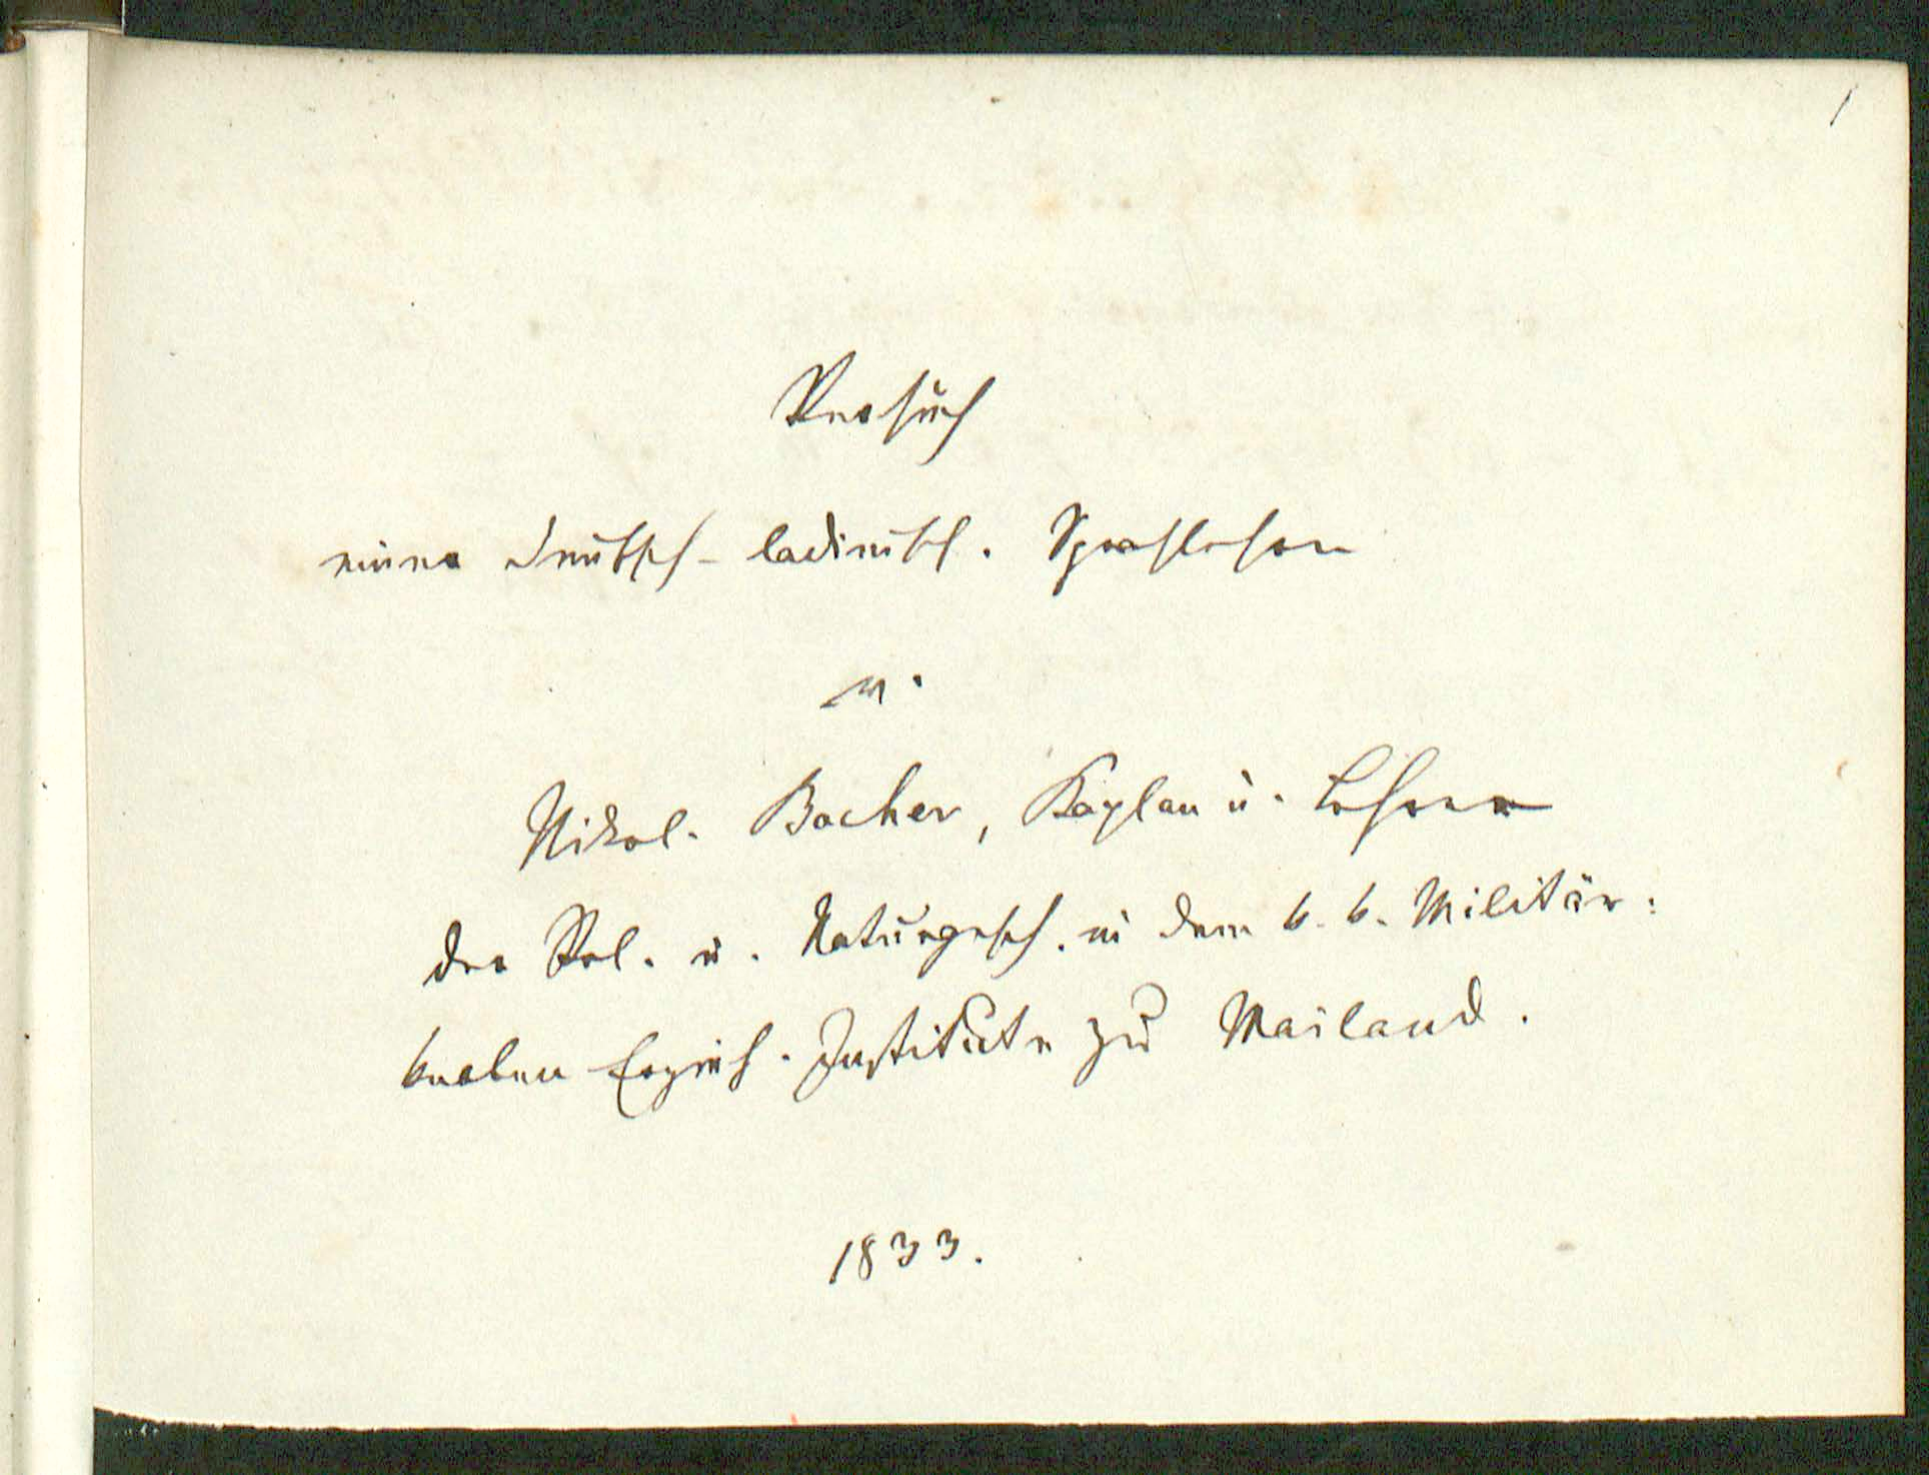 1
Versuch
einer deutsch-ladinisch. Sprachlehre
v.
Nikol. Bacher, Kaplan u. Lehrer
der Rel. u. Naturgesch. in dem k. k. Militär:
knaben Erzieh. Institute zu Mailand.
1833.